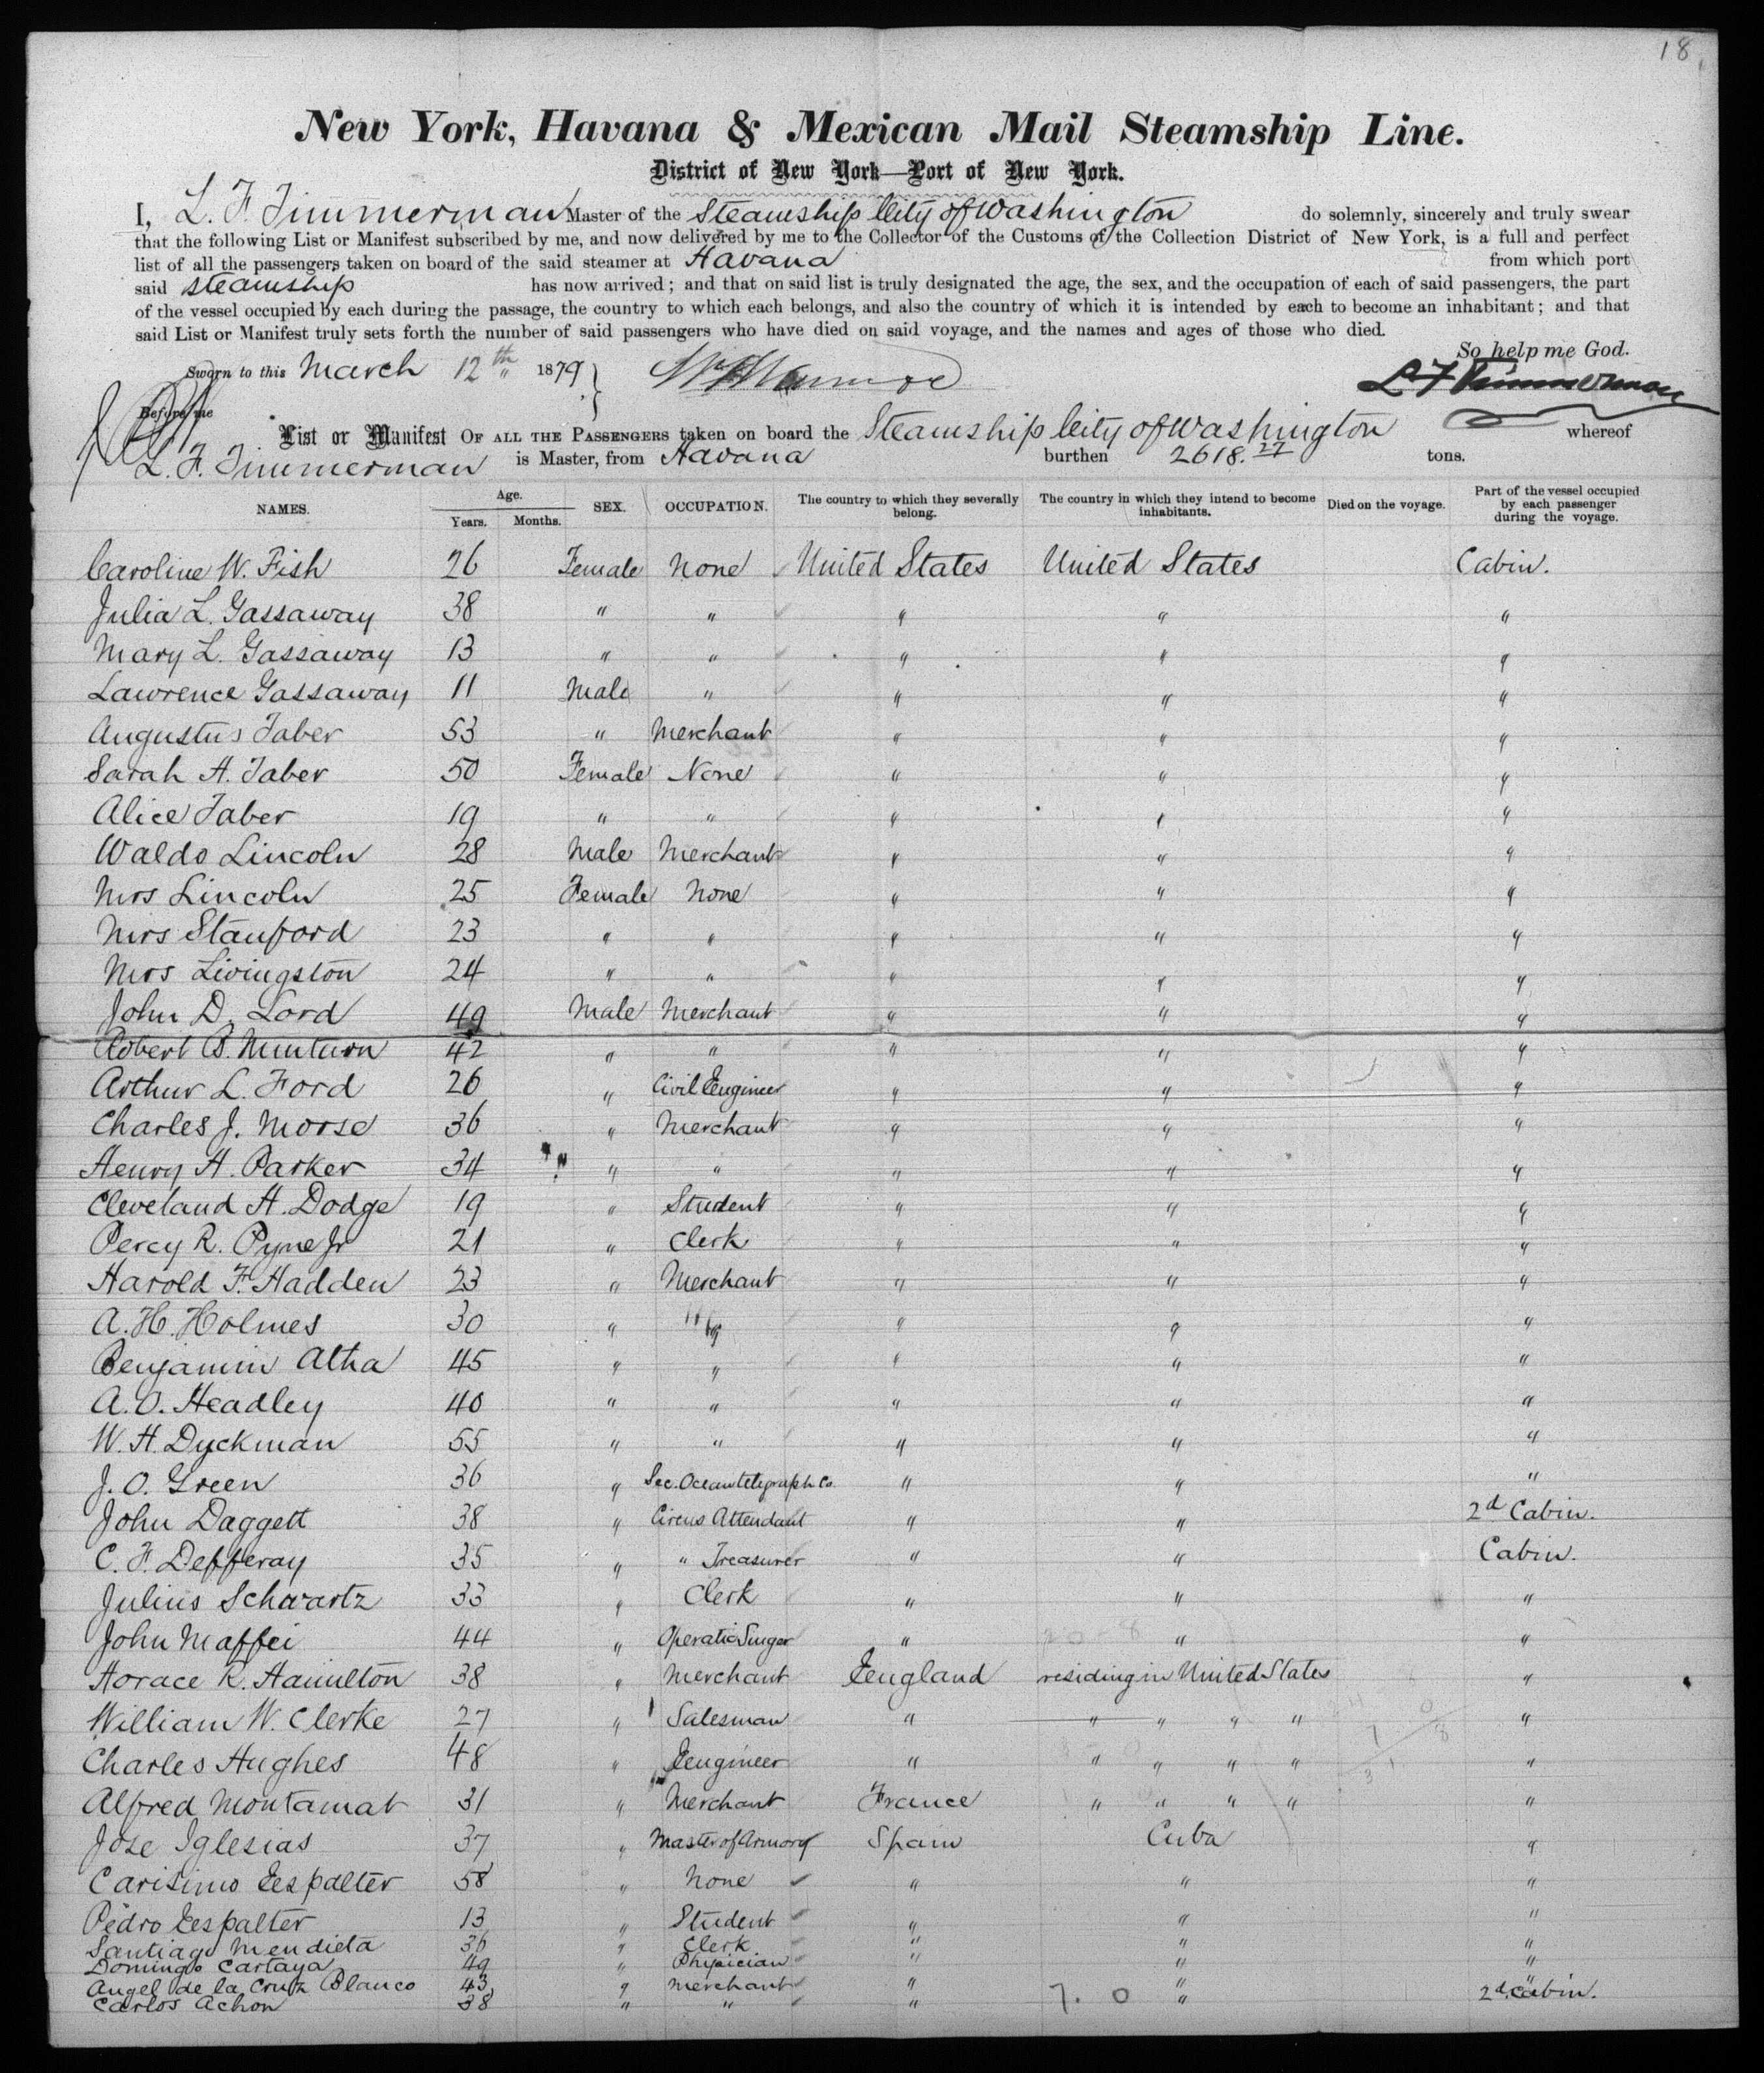 18.
New York, Havana & Mexican Mail Steamship Line.
District of New York—Port of New York.
I, L. F. Timmerman Master of the Steamship City of Washington do solemnly, sincerely and truly swear
that the following List or Manifest subscribed by me, and now delivered by me to the Collector of the Customs of the Collection District of New York, is a full and perfect
list of all the passengers taken on board of the said steamer at Havana from which port
said steamship has now arrived; and that on said list is truly designated the age, the sex, and the occupation of each of said passengers, the part
of the vessel occupied by each during the passage, the country to which each belongs, and also the country of which it is intended by each to become an inhabitant; and that
said List or Manifest truly sets forth the number of said passengers who have died on said voyage, and the names and ages of those who died.
So help me God.
Sworn to this March 12th 1879 L F Timmerman
Before me
List or Manifest OF ALL THE PASSENGERS taken on board the Steamship City of Washington whereof
L. F. Timmerman is Master, from Havana burthen 2618.27 tons.
NAMES. Age. Years. Months. SEX. OCCUPATION. The country to which they severally belong. The country in which they intend to become inhabitants. Died on the voyage. Part of the vessel occupied by each passenger during the voyage.
Caroline W. Fish 26 Female None United States United States Cabin.
Julia L. Gassaway 38 " " " " "
Mary L. Gassaway 13 " " " " "
Lawrence Gassaway 11 Male " " " "
Augustus Taber 53 " Merchant " " "
Sarah A. Taber 50 Female None " " "
Alice Taber 19 " " " " "
Waldo Lincoln 28 Male Merchant " " "
Mrs Lincoln 25 Female None " " "
Mrs Stanford 23 " " " " "
Mrs Livingston 24 " " " " "
John D. Lord 49 Male Merchant " " "
Robert B. Minturn 42 " " " " "
Arthur L. Ford 26 " Civil Engineer " " "
Charles J. Morse 36 " Merchant " " "
Henry H. Parker 34 " " " " "
Cleveland H. Dodge 19 " Student " " "
Percy R. Pyne Jr 21 " Clerk " " "
Harold F. Hadden 23 " Merchant " " "
A. H. Holmes 30 " " " " "
Benjamin Atha 45 " " " " "
A. O. Headley 40 " " " " "
W. H. Dyckman 55 " " " " "
J. O. Green 36 " Sec. Ocean telegraph Co " " "
John Daggett 38 " Circus Attendant " " 2d Cabin.
C. F. Defferay 35 " " Treasurer " " Cabin.
Julius Schwartz 33 " Clerk " " "
John Maffei 44 " Operatic Singer " " "
Horace R. Hamilton 38 " Merchant England residing in United States "
William W. Clerke 27 " Salesman " " " " " "
Charles Hughes 48 " Engineer " " " " " "
Alfred Montamat 31 " Merchant France " " " " "
Jose Iglesias 37 " Master of Armory Spain Cuba "
Carisimo Espalter 58 " None " " "
Pedro Espalter 13 " Student " " "
Santiago Mendieta 36 " Clerk " " "
Domingo Cartaya 49 " Physician " " "
Angel de la Cruz Blanco 43 " Merchant " " "
Carlos Achon 38 " " " 7. 0 " 2d. Cabin.